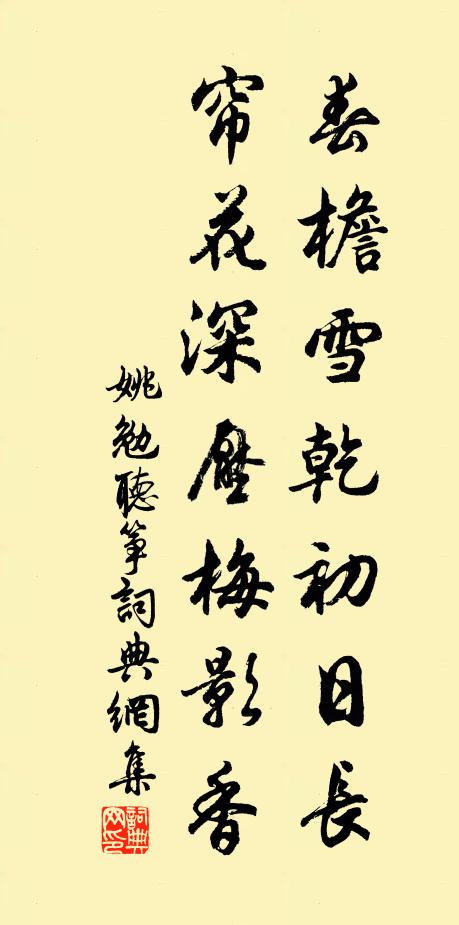 春檐雪乾初日長
帘花深壓梅影香
姚勉聽箏詞典網集
詞典網印